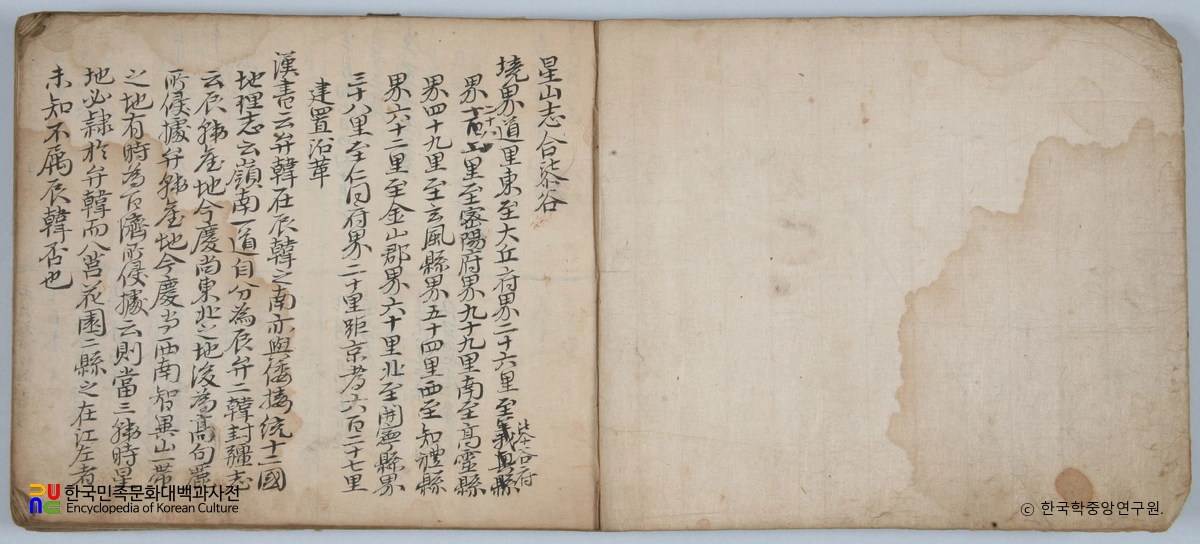 星山志合柒谷
境界道里東至大丘府界二十六里至義興縣柒谷府
界二十里至密陽府界九十九里南至高靈縣
界四十九里至玄風縣界五十四里西至知禮縣
界六十二里至金山郡界六十里北至開寧縣界
三十八里至仁同府界二十里距京都六百二十七里
建置沿革
漢書云弁韓在辰韓之南亦與倭接統十二國
地理志云嶺南一道自分為辰弁二韓封疆志
云辰韓產地今慶尚東北之地後為高句麗
所侵據弁韓產地今慶尚西南智異山一帶
之地有時為百濟所侵據云則當三韓時星
地必隷於弁韓而八莒花園二縣之在江左者
未知不屬辰韓否也
한국민족문화대백과사전
Encyclopedia of Korean Culture
ⓒ 한국학중앙연구원.